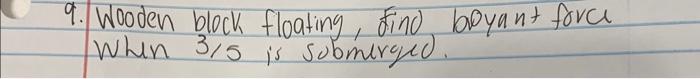 9. Wooden block floating, find boyant force
when 3/5 is submerged.